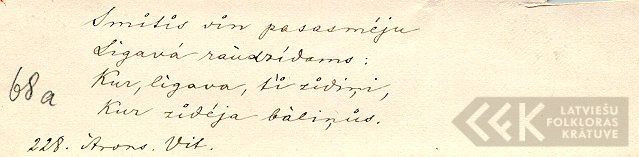 Smitis vin pasasmėju
Ligavá raùdzídams:
Kur, ligava, ti zidiņi,
Kur zidėja bàliņùs.
68a
228. Arons. Vit.
LATVIEŠU
FOLKLORAS
KRĀTUVE